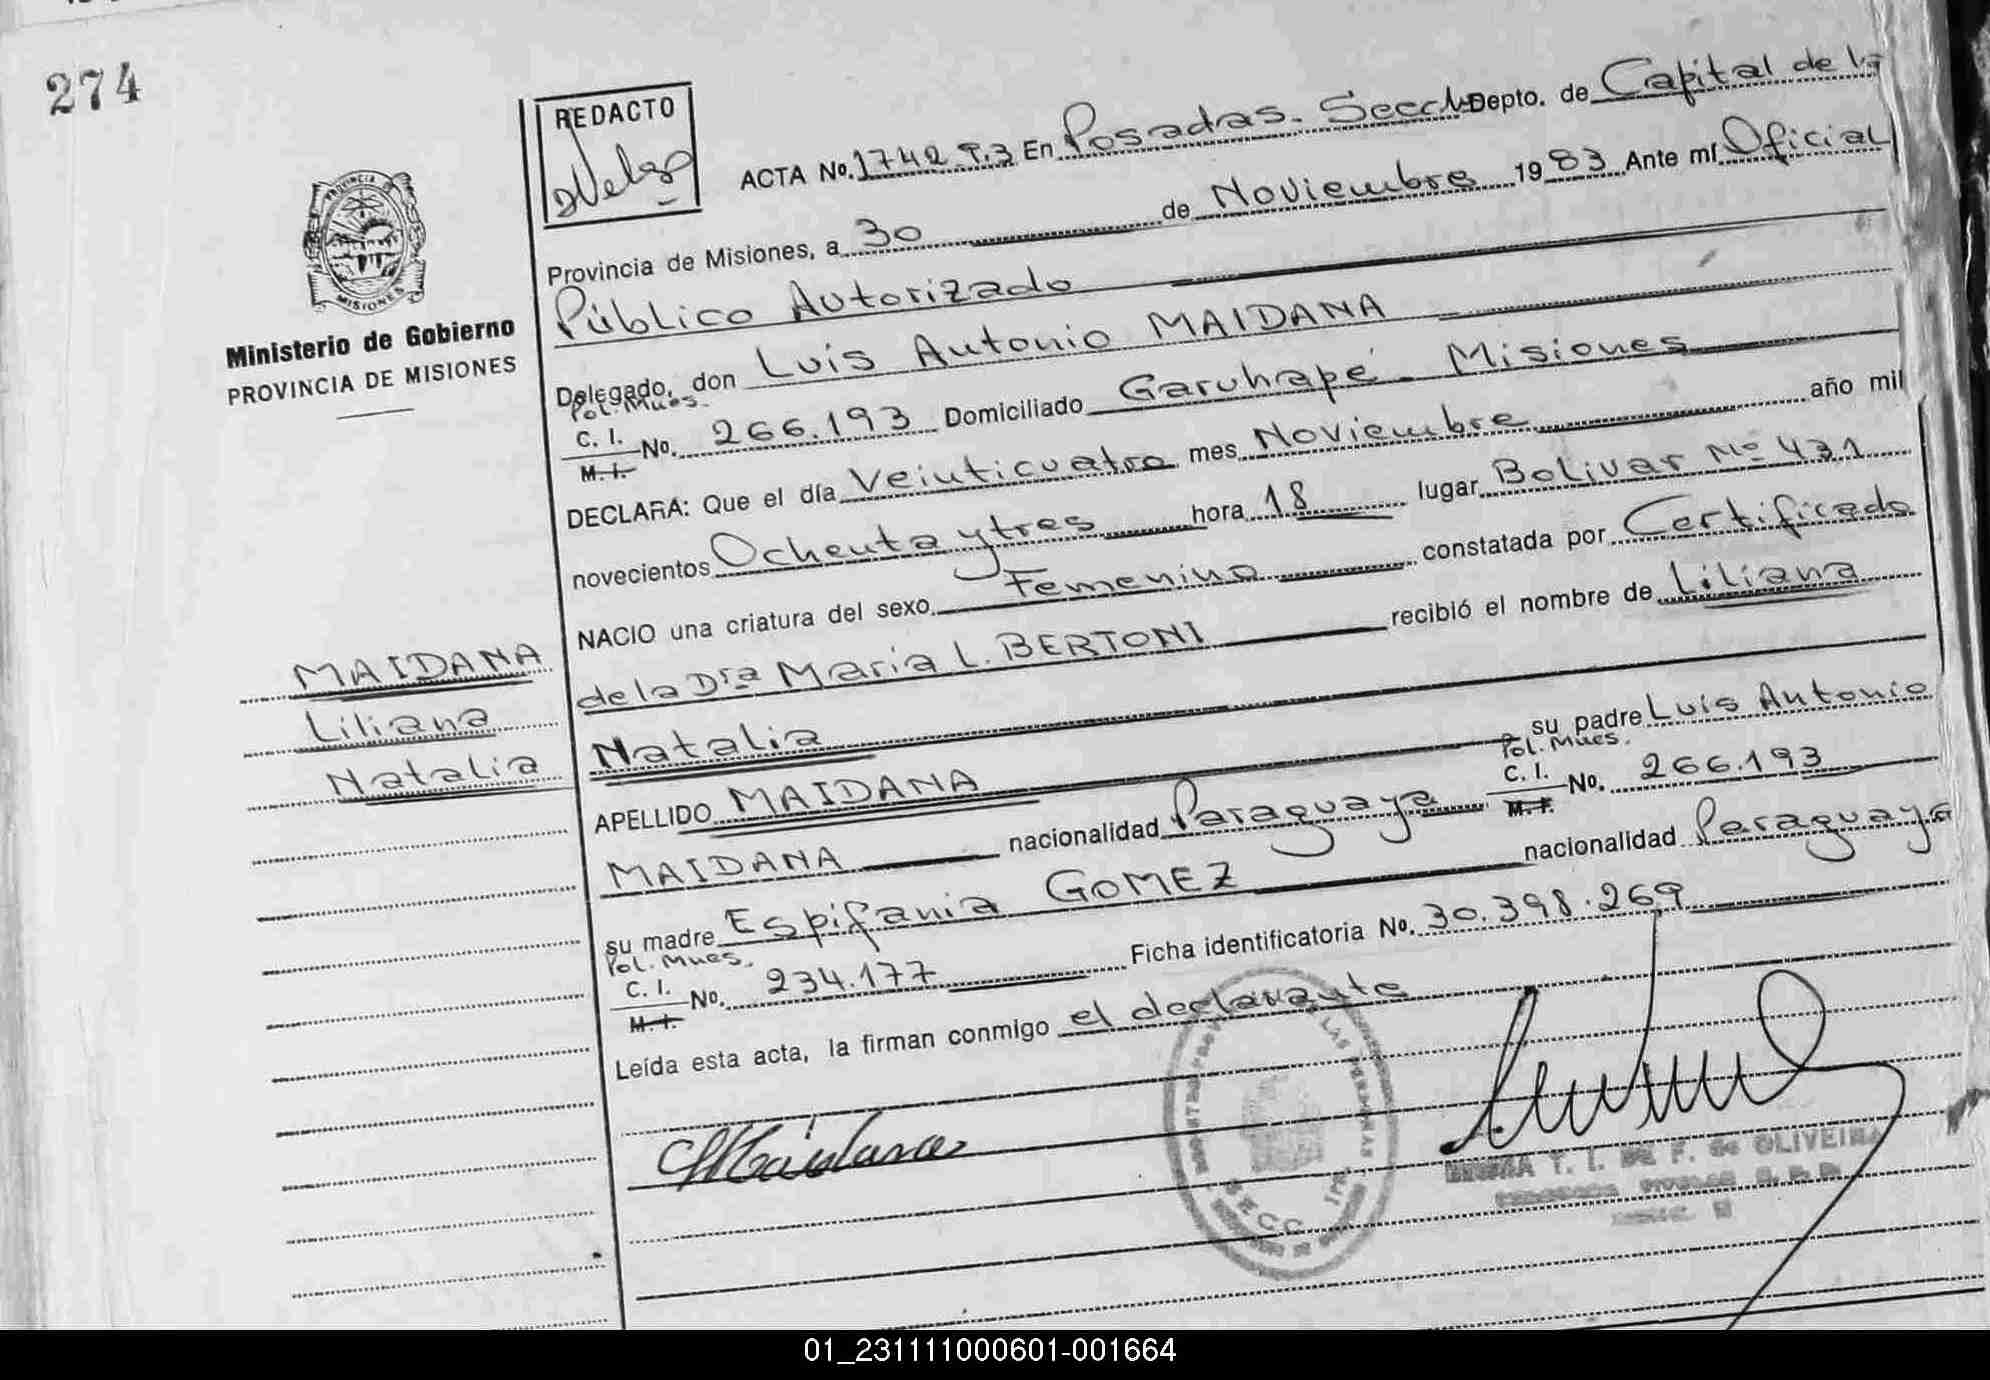 274
REDACTO
PROVINCIA DE
MISIONES
Ministerio de Gobierno
PROVINCIA DE MISIONES
ACTA No. 1742 T.3 En Posadas. Secc Depto. de Capital de la
Provincia de Misiones, a 30 de Noviembre 1983 Ante mí Oficial
Público Autorizado
Delegado, don Luis Antonio MAIDANA
Pol. Mnes.
C. I. M. I. No. 266.193 Domiciliado Garuhapé - Misiones
DECLARA: Que el día Veinticuatro mes Noviembre año mil
novecientos Ochenta y tres hora 18 lugar Bolivar Nº 431
NACIO una criatura del sexo Femenino constatada por Certificado
de la Dra Maria L. BERTONI recibió el nombre de Liliana
Natalia
APELLIDO MAIDANA su padre Luis Antonio
MAIDANA nacionalidad Paraguaya Pol. Mnes. C. I. M. I. No. 266.193
su madre Espifania GOMEZ nacionalidad Paraguaya
Pol. Mnes.
C. I. M. I. No. 234.177 Ficha identificatoria No. 30.398.269
Leída esta acta, la firman conmigo el declarante
MAIDANA
Liliana
Natalia
Maidana
LAS PERSONAS
SECC 1ra
Y. I. DE F. de OLIVEIRA
01_231111000601-001664